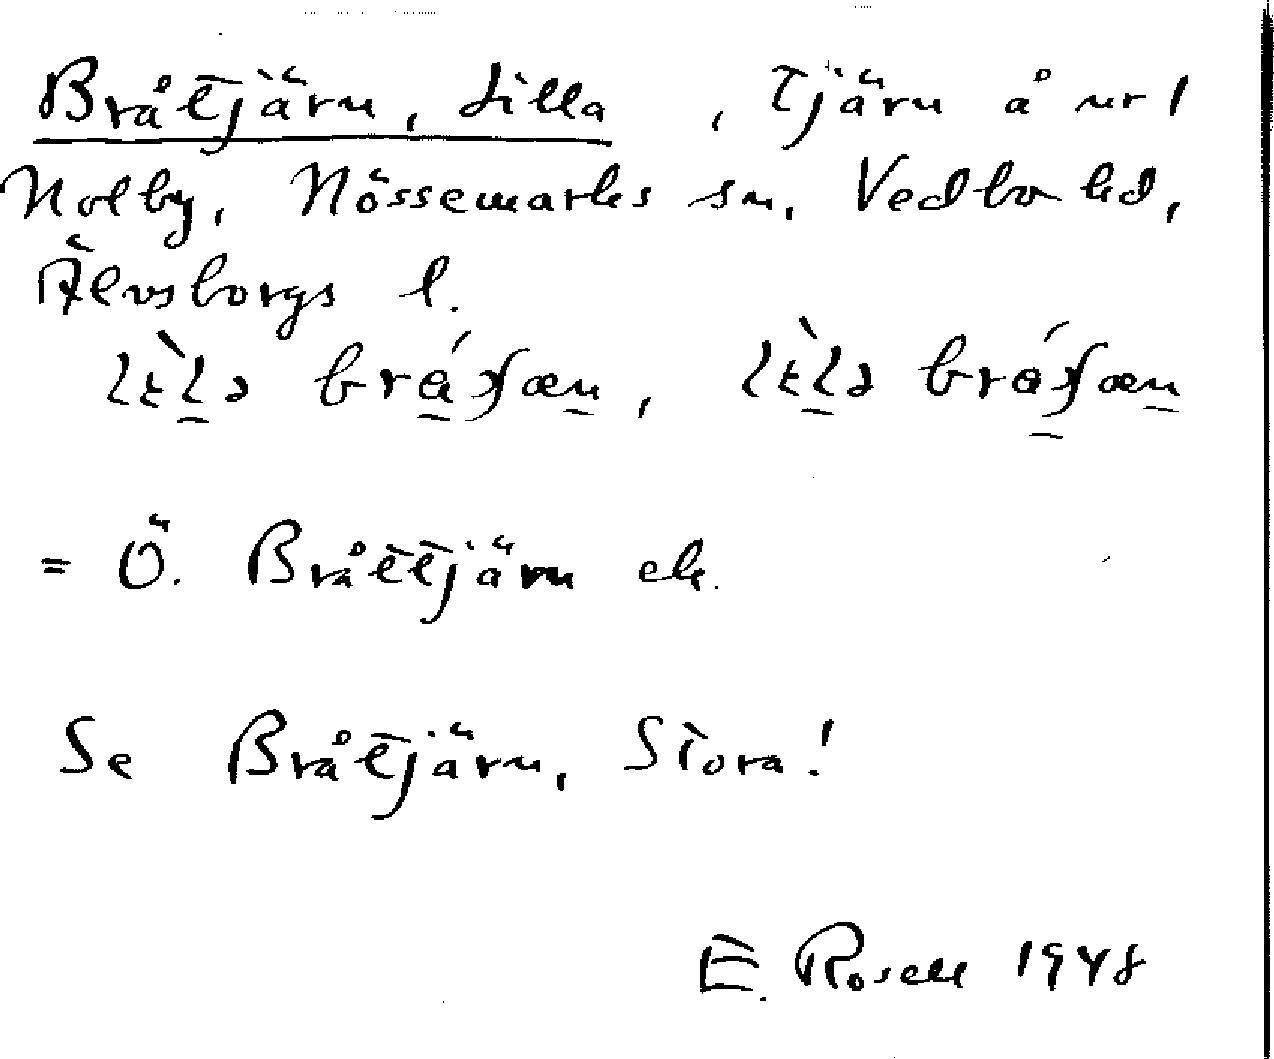 Bråtjärn, Lilla, Tjärn å nr 1
Nolby, Nössemarks sn, Vedbo hd,
Älvsborgs l.
= Ö. Bråttjärn ek.
Se Bråtjärn, Stora!
E. Rosell 1948